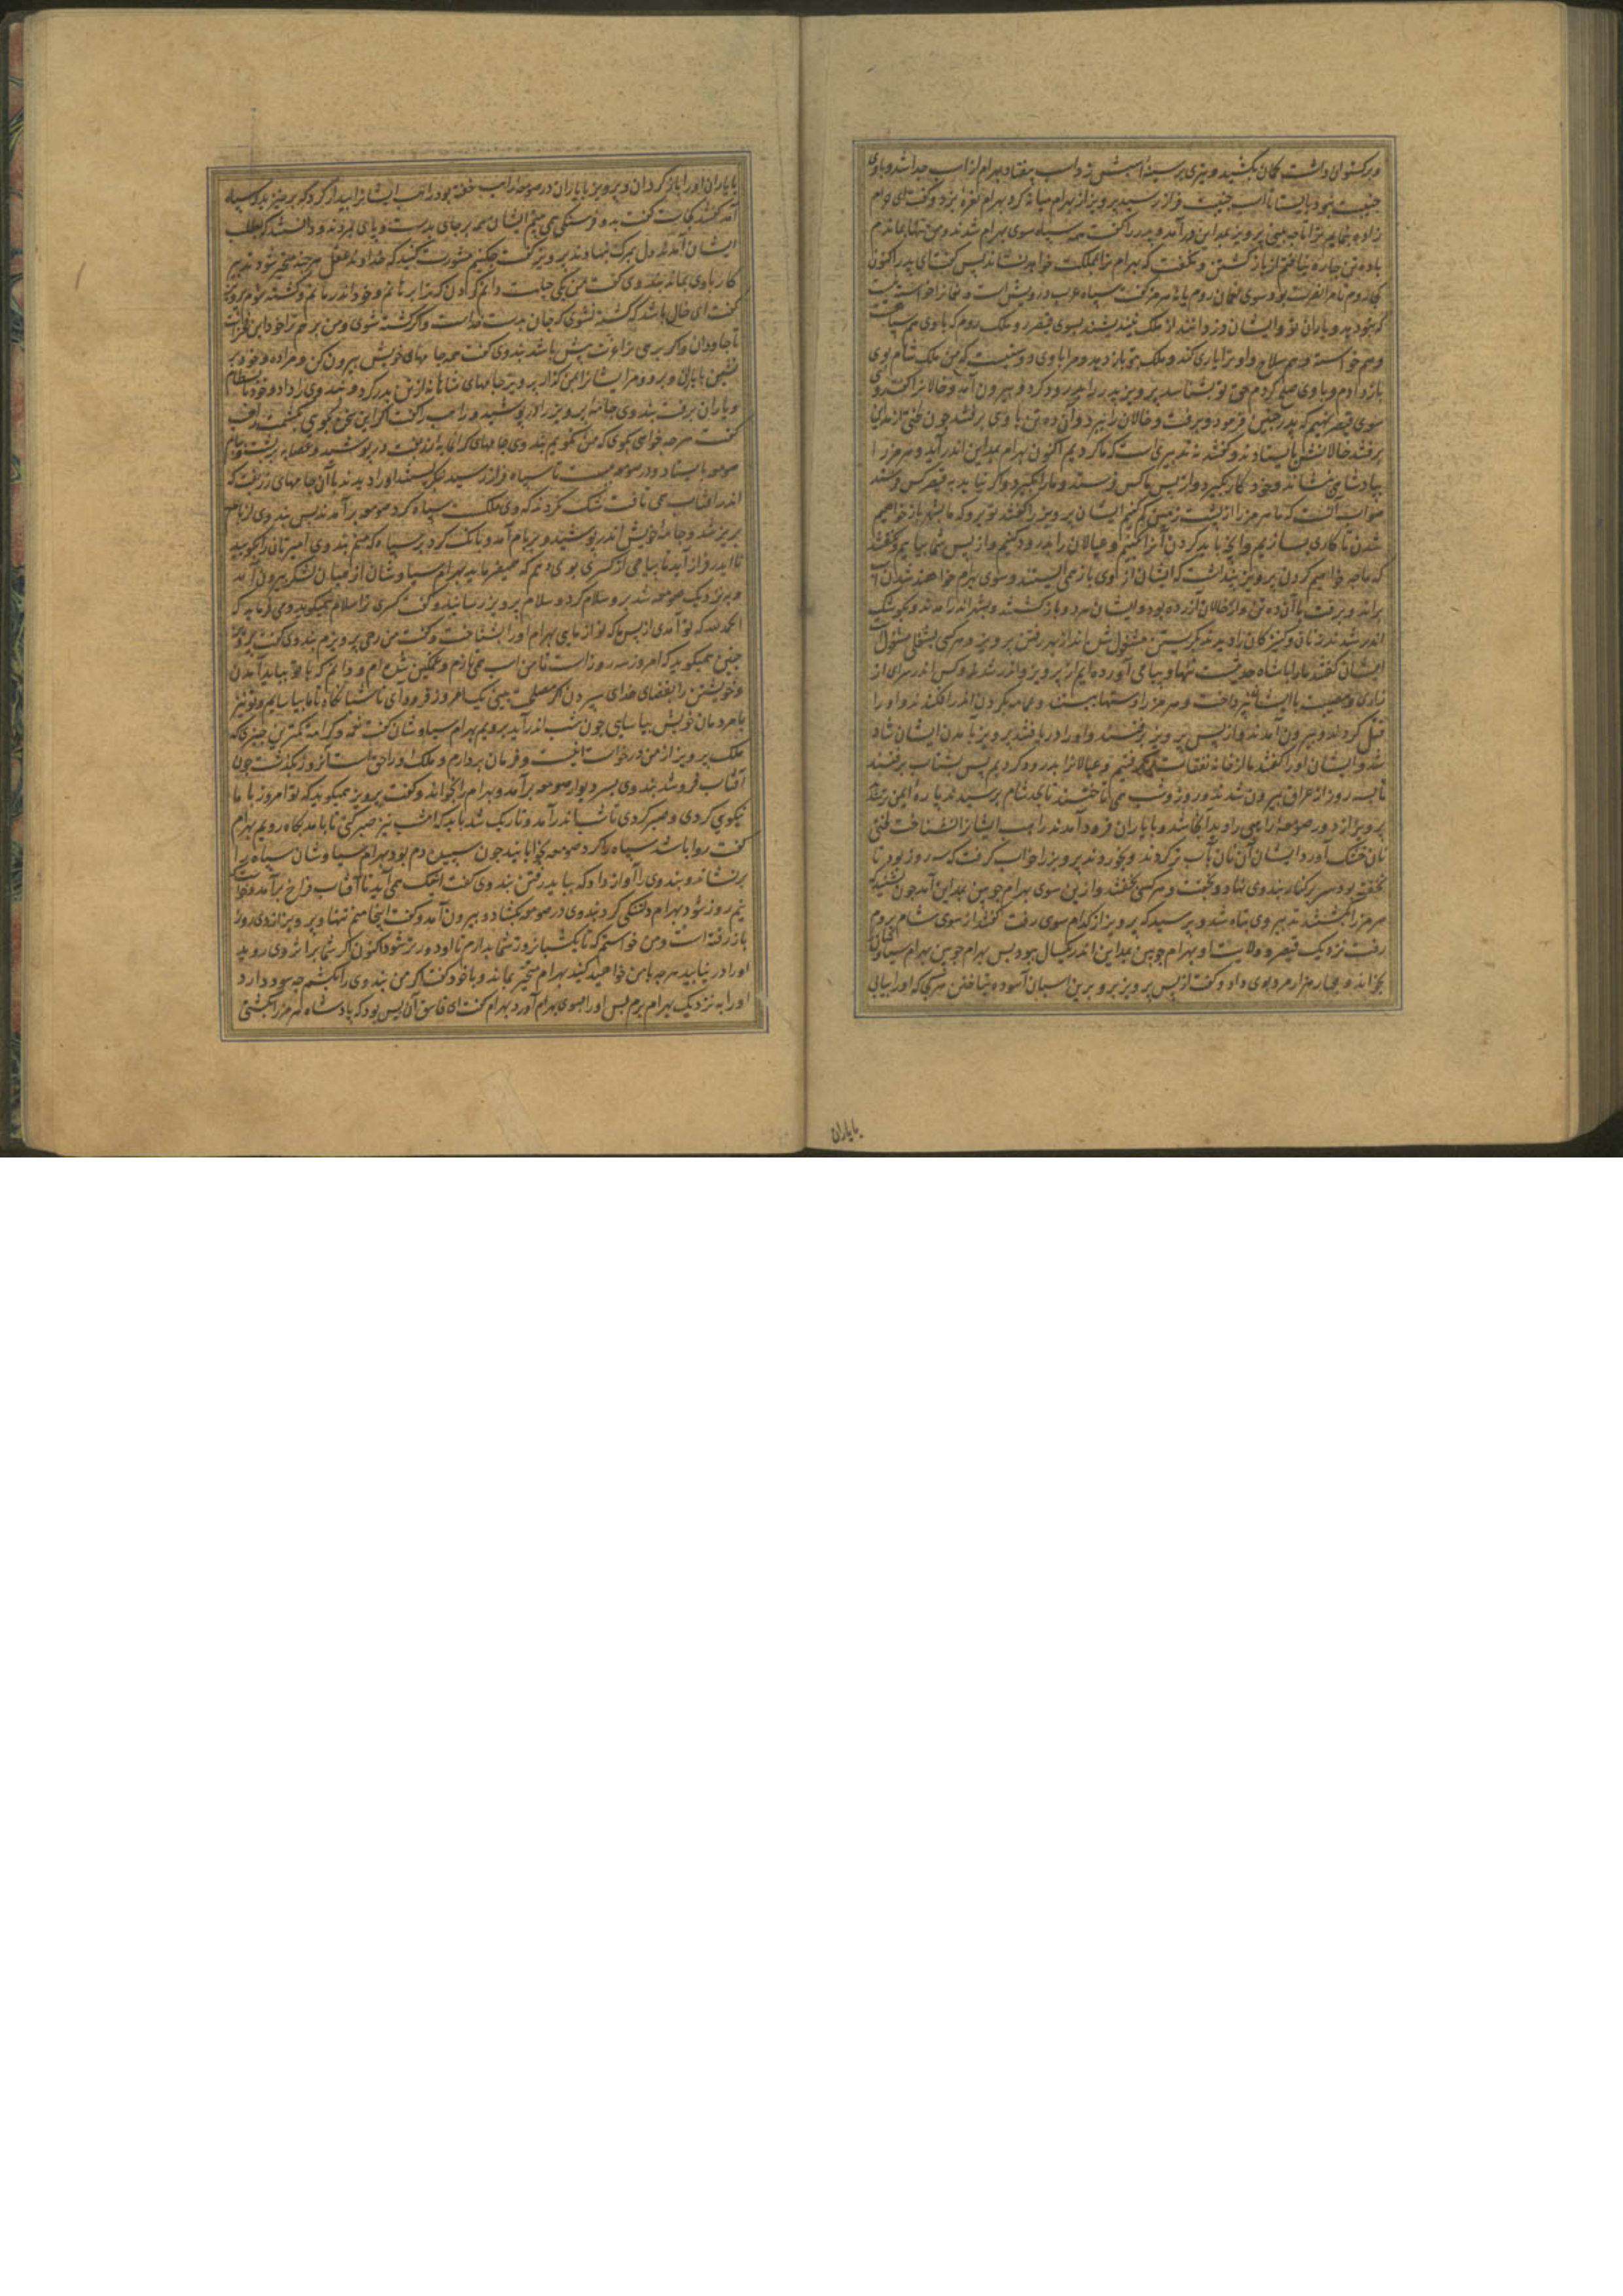 و برکستوان داشت کمان بکشید و تیری بر سینه اسبش زد و اسب بیفتاد و بهرام از اسب جدا شد و باوی
جنیبت نبود بایستاد تا اسب جنیبت فراز رسید پرویز از بهرام میانه کرد بهرام نعره بزد و گفت ای حرام
زاده بنمایم ترا تا چه بینی پرویز بمداین در آمد و پدر را گفت همه سپاه سوی بهرام شدند و من تنها بماندم
باده تن چاره نیافتم از باز گشتن و گفت که بهرام ترا بمملکت خواهد نشاند پس گفت ای پدر اکنون
کجا روم تا مرا نصرت بود سوی نعمان روم یا نه هرمز گفت سپاه عرب درویش است
که بتو دهد و یاران تو و ایشان ملک روم که باوی هم سپاهست
و هم خواسته و هم سلاح و او ترا یاری کند و ملک بتو باز دهد و مرا باوی دوستیست که من ملک شام بوی
باز دادم و باوی صلح کردم حق تو بشناسد پرویز پدر را بدرود کرد و بیرون آمد و خالانرا گفت
سوی قیصر همیروم که پدر چنین فرمود و برفت و خالان را ببرد و آن ده تن باوی برفتند چون لختی از مداین
برفتند خالانش بایستادند و گفتند نه تدبیری است که ما کردیم اکنون بهرام بمداین اندر آید و هرمز را
بپادشاهی بنشاند و خود کار بگیرد و از پس ما کس فرستد و ما را بگیرد و اگر نیابد به قیصر کس فرستد
صواب آنست که ما هرمز را از پشت زمین کم کنیم ایشان پرویز را گفتند تو برو که ما بشهر باز خواهیم
شدن تا کاری بسازیم و آنچه باید کردن آنرا بکنیم و عیالان را بدرود کنیم و از پس شما بیاییم و نگفتند
که ما چه خواهیم کردن پرویز پنداشت که ایشان از وی باز همی ایستند و سوی بهرام خواهند شدن اسب
براند و برفت با آن ده تن و از خالان آزرده بود و ایشان هر دو باز گشتند و بشهر اندر آمدند و بکوشک
اندر شدند زنان و کنیزکان را دیدند گریستن مشغول شده اند از بهر رفتن پرویز و هر کسی بشغلی مشغول
ایشان گفتند ما را با شاه حدیثست تنها و پیامی آورده ایم از پرویز و اندر شدند و کس اندر سرای از
زاری و مصیبت با ایشان نپرداخت و هرمز را دستها ببستند و عمامه بگردن اندر افکندند و او را
قتل کردند و بیرون آمدند و از پس پرویز برفتند و او را دریافتند پرویز بآمدن ایشان شاد
شد و ایشان او را گفتند ما از خانه نفقات برگرفتیم و عیالانرا بدرود کردیم پس بشتاب برفتند
تا سه روز از عراق بیرون شدند و روز و شب می تاختند تا بحد شام برسیدند پاره ایمن شدند
پرویز از دور صومعه راهبی را دید آنجا شد و با یاران فرود آمدند راهب ایشانرا نشناخت لختی
نان خشک آورد ایشان آن نان بآب تر کردند و بخوردند پرویز را خواب گرفت که سه روز بود تا
نخفته بود سر بر کنار بندوی نهاد و بخفت و هر کسی بخفتند و از این سوی بهرام چوبین بمداین آمد چون بشنید که
هرمز را بکشتند تدبیر وی تباه شد و پرسید که پرویز از کدام سوی رفت گفتند از سوی شام بروم
رفت نزدیک قیصر و بهرام چوبین بمداین اندر یکسال ببود پس بهرام چوبین بهرام سیاوشان
بخواند و چهار هزار مرد بوی داد و گفت از پس پرویز برو برین اسبان آسوده بتاختن هر کجا که او را بیابی
با یاران
با یاران او را باز گردان و پرویز با یاران در صومعه راهب خفته بود راهب ایشانرا بیدار کرد که برخیزید که سپاه
آمد گفتند کجاست گفت بدو فرسنگی همی بینم ایشان همه بر جای بدست و پای بمردند و دانستند که بطلب
ایشان آمدند دل بمرگ بنهادند پرویز گفت چکنیم مشورت کنید که خداوند عقل هر چند متحیر شود تدبیر
کار باوی بماند بندوی گفت من یکی حیلت دانم کردن که ترا برهانم و خود اندر مانم و کشته شوم پرویز
گفت ای خال باشد که کشته نشوی که جان بدست خداست و اگر کشته شوی و من برهم ترا خود این فخر است
تا جاودان و اگر برهی ترا عزت بیش باشد بندوی گفت همه جامهای خویش بیرون کن و مرا ده و خود بر
نشین با یاران و برو و مرا ایشانرا بمن گذار پرویز جامهای شاهانه از تن بدر کرد و بندوی را داد و خود با بسطام
و یاران برفت بندوی جامه پرویز را در پوشید و راهب را گفت اگر این سخن بگوی بکشمت راهب
گفت هر چه خواهی بگوی که من نگویم بندوی جامهای گرانمایه زربفت در پوشید و عصابه بر بست و ببام
صومعه بایستاد و در صومعه ببست تا سپاه فراز رسید بنگریستند او را دیدند با آن جامهای زربفت که
اندر آفتاب می تافت شک نکردند که وی ملکست سپاه گرد صومعه بر آمدند پس بندوی از بام
بزیر شد و جامه خویش اندر پوشید و بر بام آمد و بانگ کرد بر سپاه که منم بندوی امیرتان را بگویید
تا ایدر فراز آید تا پیامی از کسری بوی دهم که همیفرماید بهرام سیاوشان از میان لشکر بیرون آمد
و بنزدیک صومعه شد برو سلام کرد و سلام پرویز رسانید و گفت کسری ترا سلام همیگوید و می فرماید که
الحمد لله که تو آمدی از پس ما که تو از مایی بهرام او را بشناخت و گفت من رهی پرویزم بندوی گفت پرویز
چنین همیگوید که امروز سه روز است تا من اسب همی تازم و غمگین شده ام و دانم که با تو بباید آمدن
و خویشتن را بقضای خدای سپردن اگر مصلحت بینی یک امروز فرود آی تا شبانگاه تا ما بیاساییم و تو نیز
با مردمان خویش بیاسایی چون شب اندر آید برویم بهرام سیاوشان گفت نعم و کرامة کمترین چیزی که
ملک پرویز از من درخواست اینست و فرمان بردارم و ملک او را حق است آنروز بگذشت چون
آفتاب فرو شد بندوی بسر دیوار صومعه بر آمد و بهرام را بخواند و گفت پرویز همیگوید که تو امروز با ما
نیکویی کردی و صبر کردی تا شب اندر آمد و تاریک شد باید که امشب نیز صبر کنی تا بامداد پگاه رویم بهرام
گفت روا باشد سپاه را گرد صومعه بخوابانید چون سپیده دم بود بهرام سیاوشان سپاه را
برنشاند و بندوی را آواز داد که بباید رفتن بندوی گفت اینک همی آید تا آفتاب فراخ بر آمد و خواست
نیم روز شود بهرام دلتنگی کرد بندوی در صومعه بگشاد و بیرون آمد و گفت اینجا منم تنها و پرویز از دی روز
باز رفته است و من خواستم که تا یکشبانروز شما را بدارم تا او دورتر شود اکنون اگر شما بر اثر وی روید
او را در نیابید هر چه با من خواهید کنید بهرام متحیر بماند و با خود گفت اگر من بندوی را بکشم چه سود دارد
او را به نزدیک بهرام برم پس او را بسوی بهرام آورد بهرام گفت ای فاسق آن بس نبود که پادشاه هرمز را بکشتی